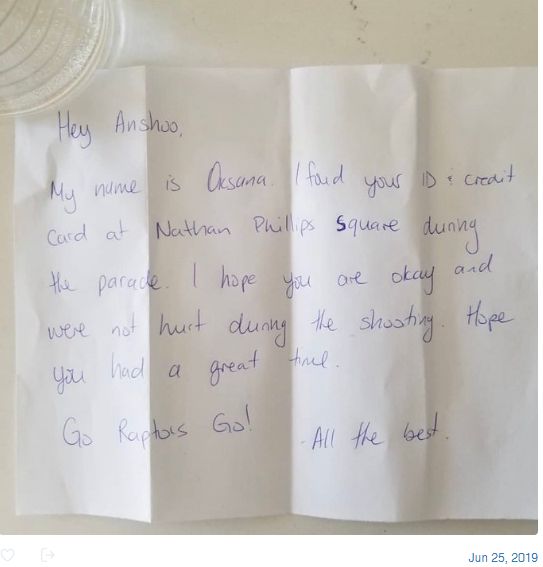 Hey Anshoo,
My name is Oksana. I found your ID & credit
card at Nathan Phillips Square during
the parade. I hope you are okay and
were not hurt during the shooting. Hope
you had a great time.
Go Raptors Go!
- All the best.
Jun 25, 2019